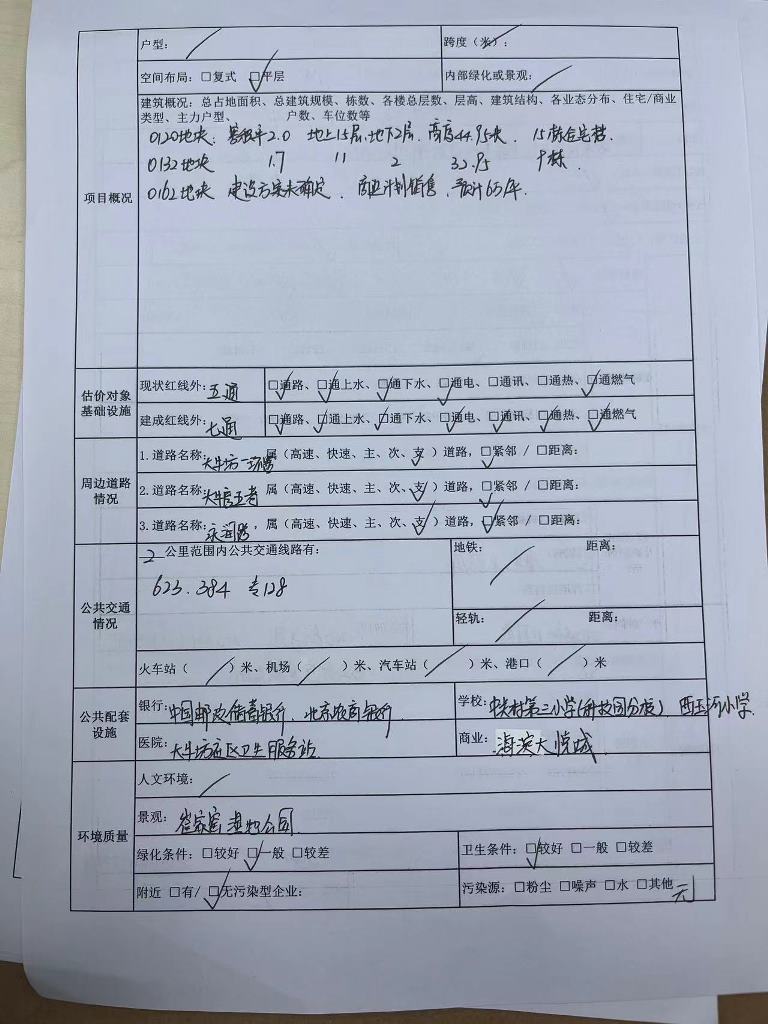 户型： 跨度（米）：
空间布局：□复式 □平层 内部绿化或景观：
项目概况
建筑概况：总占地面积、总建筑规模、栋数、各楼总层数、层高、建筑结构、各业态分布、住宅/商业
类型、主力户型、 户数、车位数等
0120地块： 容积率2.0 地上15层,地下2层. 高度44.95米. 15栋住宅楼.
0132地块 1.7 11 2 32.95 9栋.
0162地块 建设方案未确定. 商业计划销售.预计65/年.
估价对象
基础设施
现状红线外：五通 □通路、□通上水、□通下水、□通电、□通讯、□通热、□通燃气
建成红线外：七通 □通路、□通上水、□通下水、□通电、□通讯、□通热、□通燃气
周边道路
情况
1.道路名称：大牛坊一 属（高速、快速、主、次、支）道路，□紧邻 / □距离：
2.道路名称：大牛坊五 属（高速、快速、主、次、支）道路，□紧邻 / □距离：
3.道路名称：永润路，属（高速、快速、主、次、支）道路，□紧邻 / □距离：
公共交通
情况
2 公里范围内公共交通线路有： 地铁： 距离：
623. 384 专128
轻轨： 距离：
火车站（ ）米、机场（ ）米、汽车站（ ）米、港口（ ）米
公共配套
设施
银行：中国邮政储蓄银行、北京农商银行 学校：中关村第三小学(科技园分校) 西玉河小学.
医院：大牛坊社区卫生服务站 商业：海淀大悦城
环境质量
人文环境：
景观：崔家窑 公园
绿化条件：□较好 □一般 □较差 卫生条件：□较好 □一般 □较差
附近 □有/ □无污染型企业： 污染源：□粉尘 □噪声 □水 □其他 无